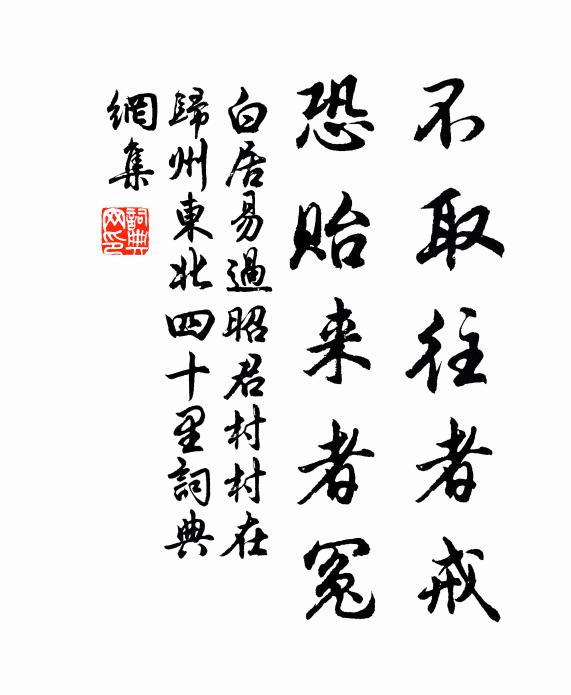 不取往者戒
恐貽来者冤
白居易過昭君村村在
歸州東北四十里詞典
網集
詞典
网印